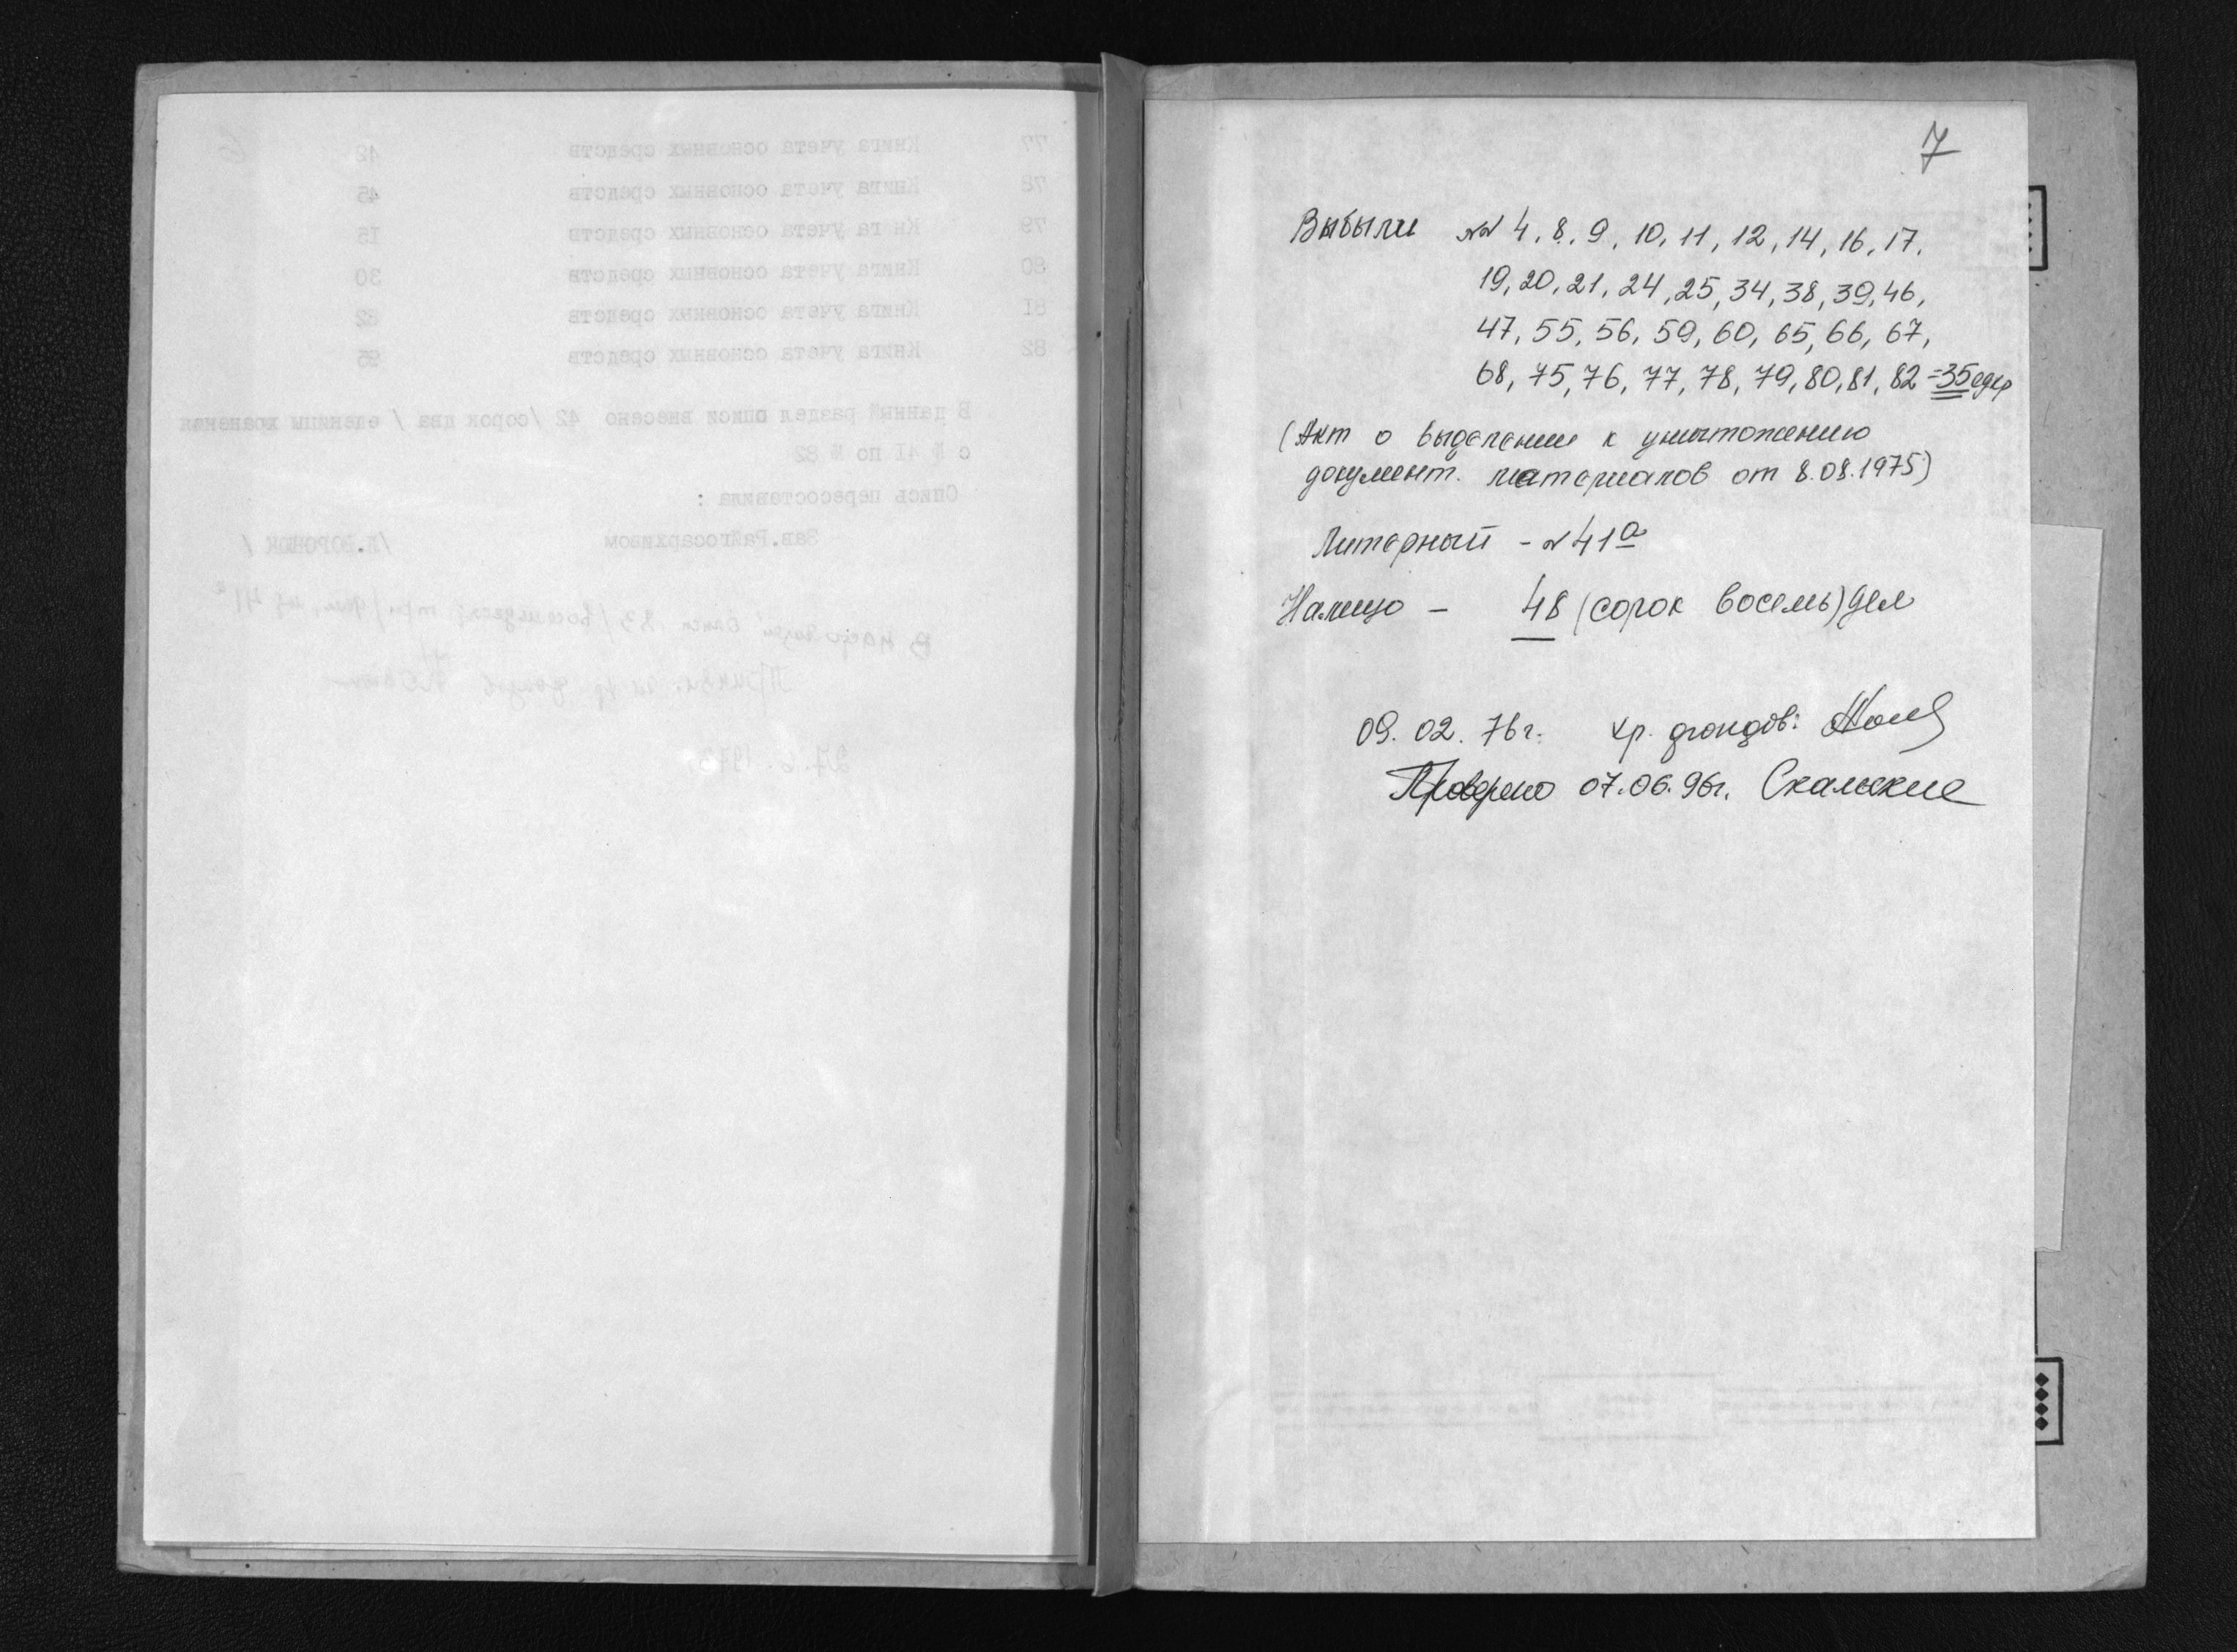 77 Книга учета основных средств 42
78 Книга учета основных средств 45
79 Кни га учета основных средств I5
80 Книга учета основных средств 30
8I Книга учета основных средств 82
82 Книга учета основных средств 95
В данный раздел описи внесено 42 /сорок два / еденицы хранения
с № 4I по № 82
Опись пересоставила :
Зав.Райгосархивом
7
Выбыли №№ 4, 8, 9, 10, 11, 12, 14, 16, 17,
19, 20, 21, 24, 25, 34, 38, 39, 46,
47, 55, 56, 59, 60, 65, 66, 67,
68, 75, 76, 77, 78, 79, 80, 81, 82 = 35 едхр
(Акт о выделении к уничтожению
документ. материалов от 8.08.1975)
Литерный - № 41а
Налицо - 48 (сорок восемь) дел
09. 02. 76 г. хр. фондов:
Проверено 07.06.96г.